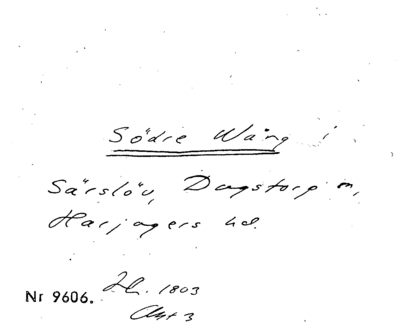 Södre Wång i
Särslöv, Dagstorp sn,
Harjagers hd.
Nr 9606. 1803
Akt 3